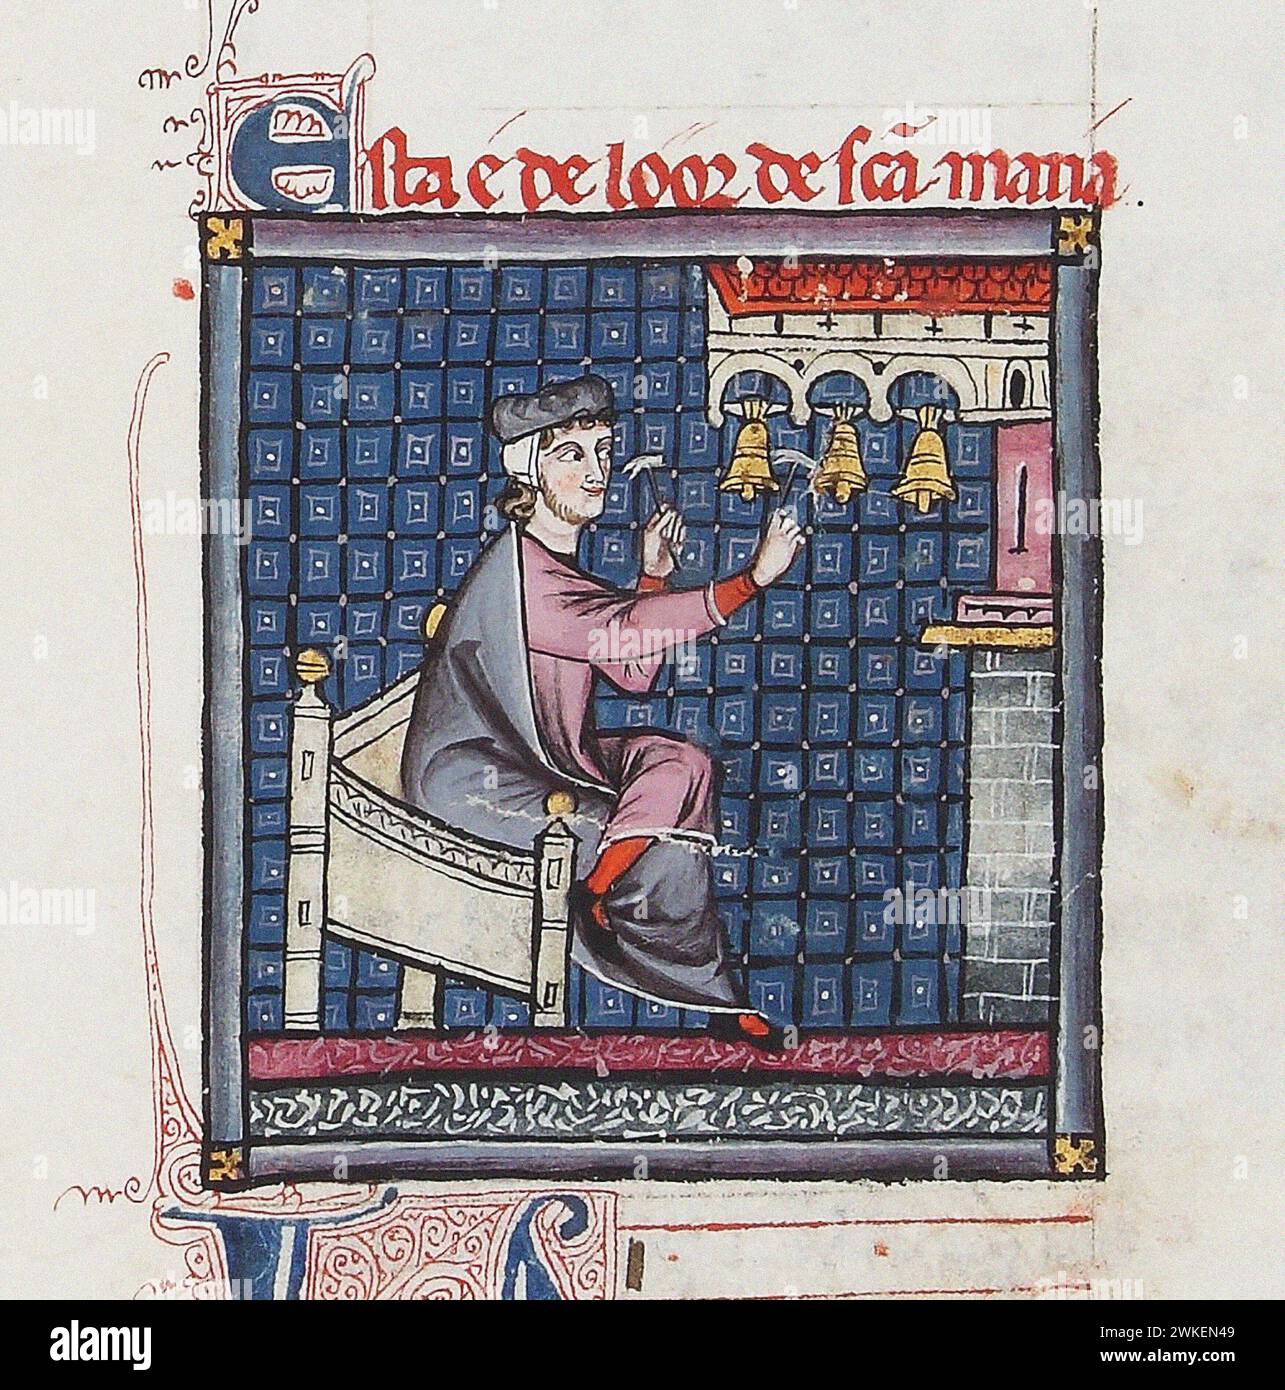 Esta é de loor de scã maria.
alamy
Image ID: 2WKEN49
www.alamy.com